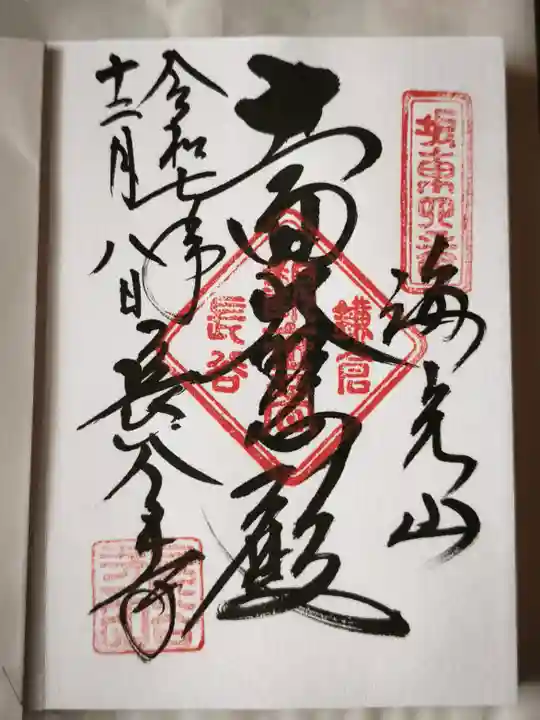 坂東四番
海光山
十一面大悲殿
鎌倉
長谷
令和七年
十二月八日
長谷寺